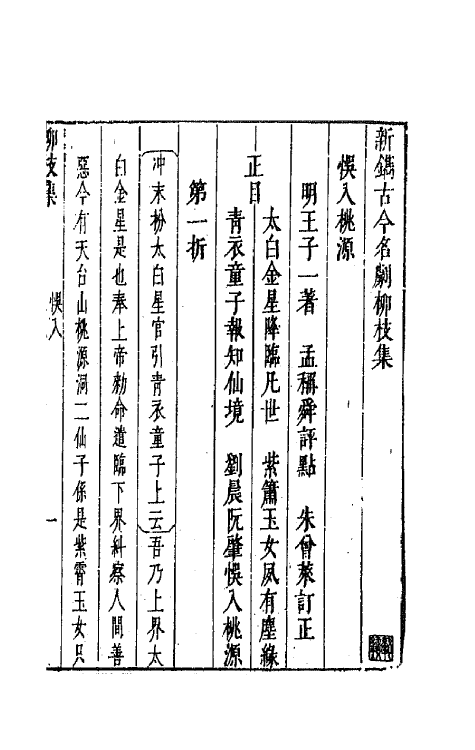 新鐫古今名劇柳枝集
悞入桃源
明王子一著　孟稱舜評點　朱曾萊訂正
正目
太白金星降臨凡世　紫簫玉女夙有塵緣
青衣童子報知仙境　劉晨阮肇悞入桃源
第一折
冲末扮太白星官引青衣童子上云吾乃上界太
白金星是也奉上帝勑命遣臨下界糾察人間善
惡今有天台山桃源洞二仙子係是紫霄玉女只
柳枝集　悞入　一